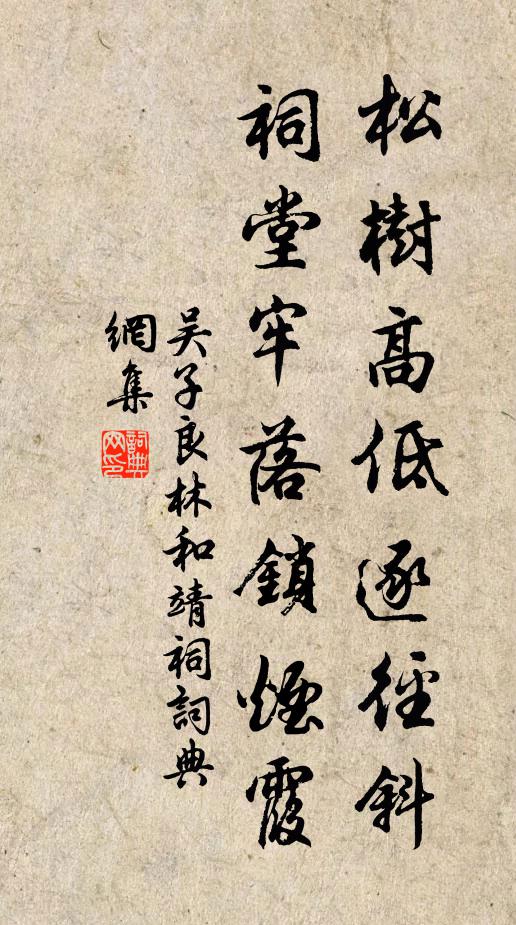 松樹高低逐徑斜
祠堂牢落鎖煙霞
吴子良林和靖祠詞典
網集
詞典
网印